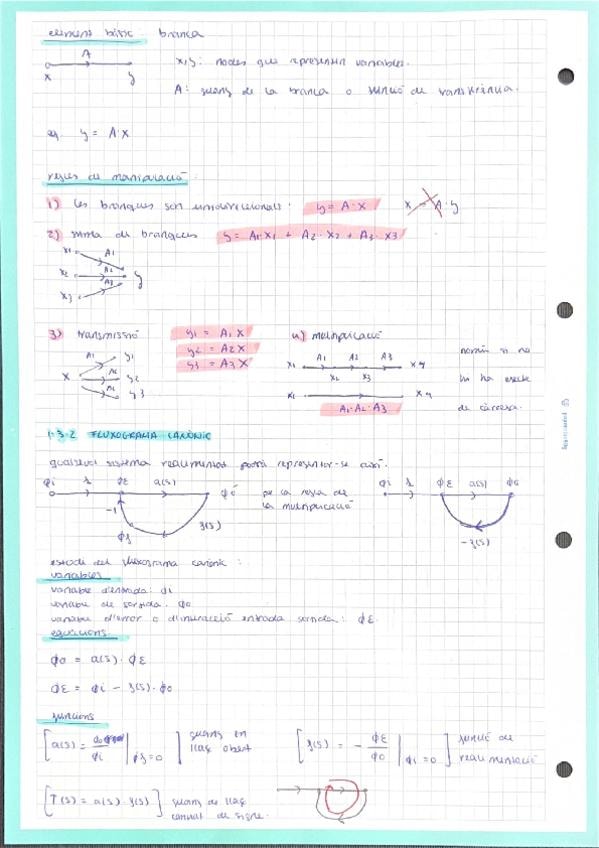 element bàsic: branca
A
x y
x,y: nodes que representen variables.
A: guany de la branca o funció de transferència.
eq. y = A·x
regles de manipulació:
1) les branques són unidireccionals. y = A·x x = A·y
2) suma de branques y = A1·x1 + A2·x2 + A3·x3
x1 A1
x2 A2 y
x3 A3
3) transmissió y1 = A1 x
y2 = A2 x
y3 = A3 x
x A1 y1
y2
y3
4) multiplicació
x1 A1 A2 A3 x4
x2 x3
x1 x4
A1·A2·A3
només si no
hi ha efecte
de càrrega.
1.3.2 FLUXOGRAMA CANÒNIC
qualsevol sistema realimentat podrà representar-se així:
ϕi 1 ϕE a(s) ϕo
-1
ϕf f(s)
per la regla de
la multiplicació
ϕi 1 ϕE a(s) ϕo
-f(s)
estudi del fluxograma canònic:
variables
variable d'entrada: ϕi
variable de sortida: ϕo
variable d'error o diferència entrada sortida: ϕE
equacions
ϕo = a(s)·ϕE
ϕE = ϕi - f(s)·ϕo
funcions
[a(s) = ϕi | ϕf=0] guany en
llaç obert
[f(s) = - ϕE/ϕo | ϕi=0] funció de
realimentació
[T(s) = a(s)·f(s)] guany de llaç
canviat de signe.